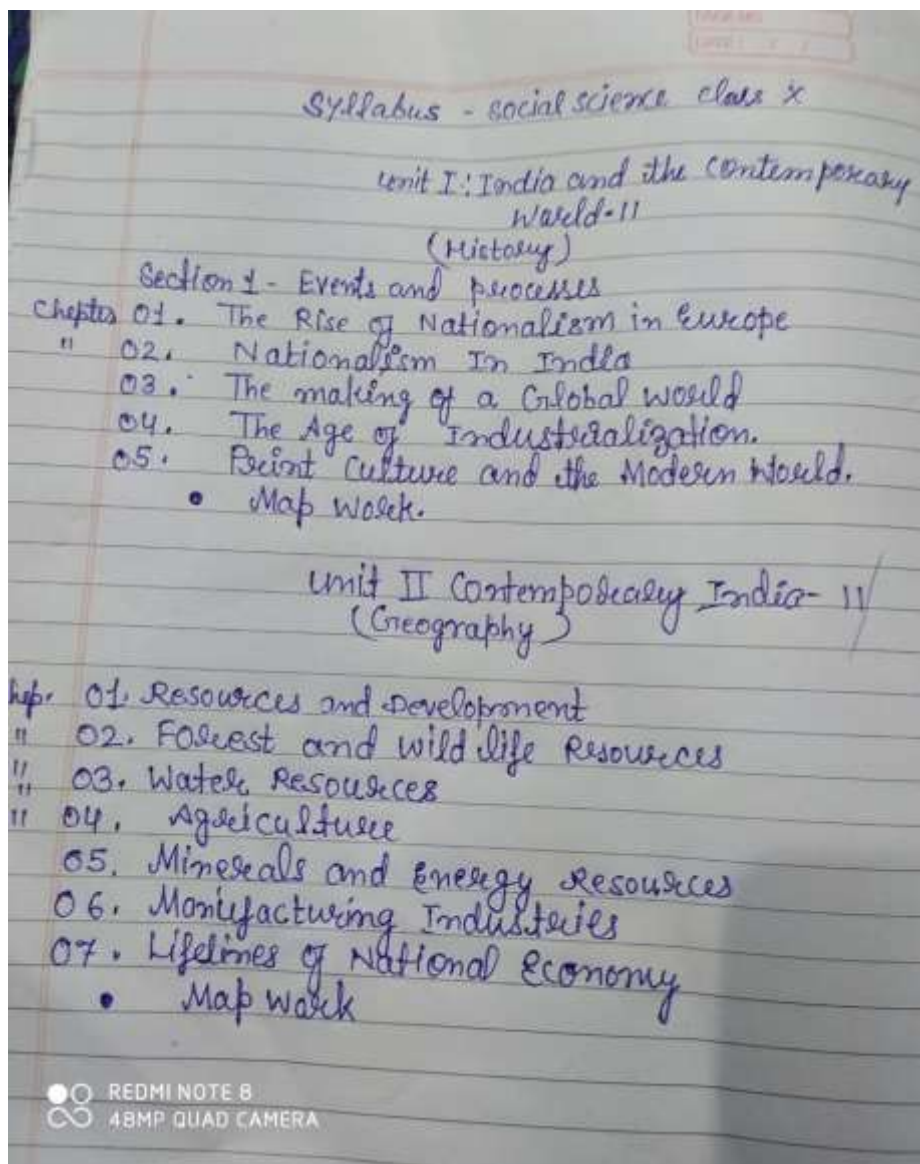 Syllabus - social science class X
Unit I: India and the Contemporary
World-II
(History)
Section 1 - Events and processes
Chapter 01. The Rise of Nationalism in Europe
" 02. Nationalism In India
03. The making of a Global world
04. The Age of Industrialization.
05. Print Culture and the Modern World.
• Map Work.
Unit II Contemporary India- II
(Geography)
hap. 01. Resources and Development
" 02. Forest and wild life Resources
" 03. Water Resources
" 04. Agriculture
05. Minerals and Energy Resources
06. Manufacturing Industries
07. Lifelines of National Economy
• Map work
REDMI NOTE 8
48MP QUAD CAMERA